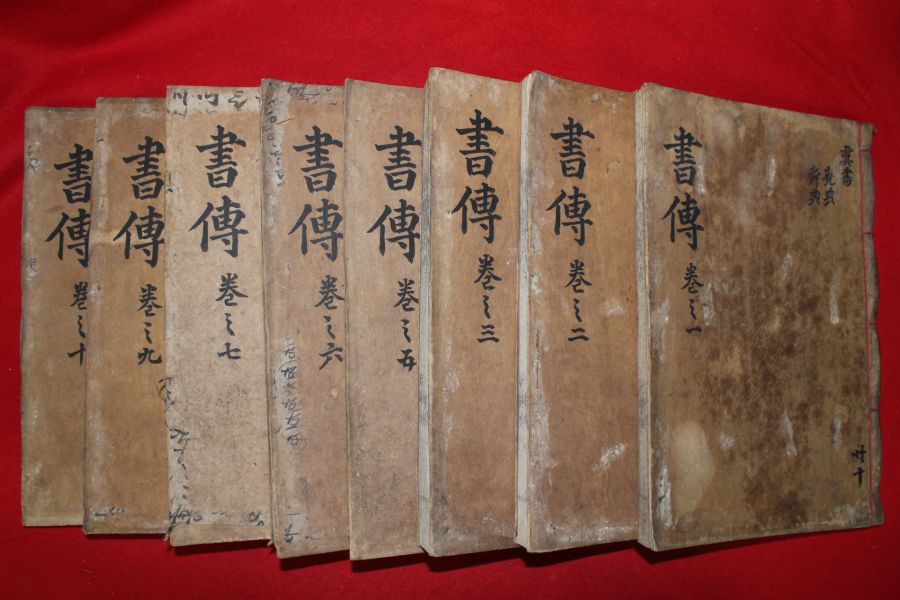 虞書
堯典
舜典
書傳 卷之一
書傳 卷之二
書傳 卷之三
書傳 卷之五
書傳 卷之六
書傳 卷之七
書傳 卷之九
書傳 卷之十